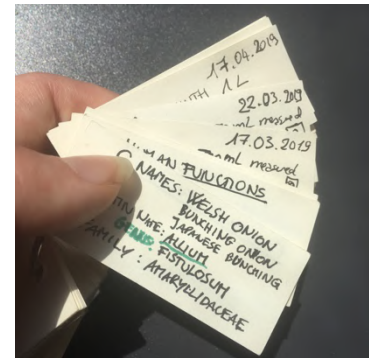 17.04.2019
1L
22.03.2019
measured
17.03.2019
mL measured
FUNCTIONS
NAMES: WELSH ONION
BUNCHING ONION
JAPANESE BUNCHING
NAME: ALLIUM
GENUS: FISTULOSUM
FAMILY: AMARYLLIDACEAE